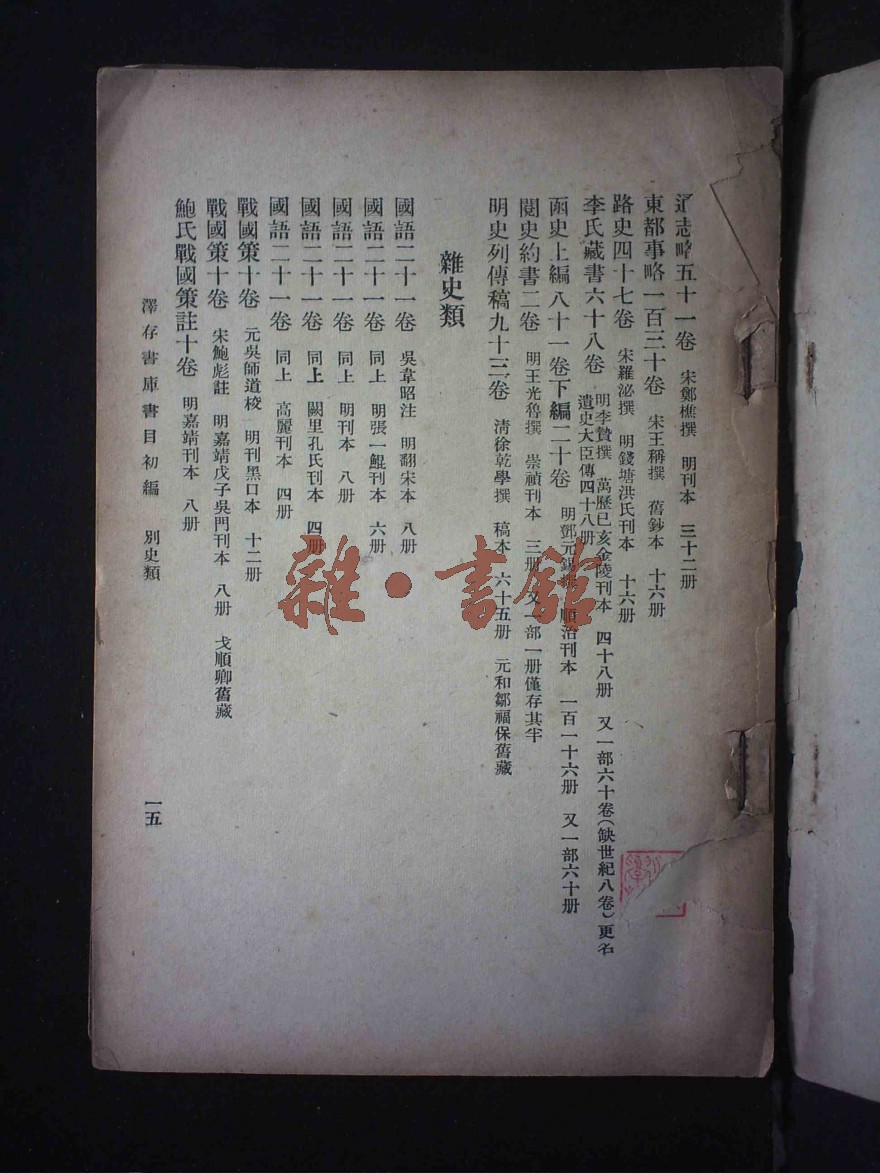 通志略五十一卷　宋鄭樵撰　明刊本　三十二册
東都事略一百三十卷　宋王稱撰　舊鈔本　十六册
路史四十七卷　宋羅泌撰　明錢塘洪氏刊本　十六册
李氏藏書六十八卷　明李贄撰　萬歷已亥金陵刊本　四十八册　又一部六十卷(缺世紀八卷)更名
遺史大臣傳四十八册
函史上編八十一卷下編二十卷　明鄧元錫撰　順治刊本　一百一十六册　又一部六十册
閱史約書二卷　明王光魯撰　崇禎刊本　三册　又一部一册僅存其半
明史列傳稿九十三卷　清徐乾學撰　稿本　六十五册　元和鄒福保舊藏
雜史類
國語二十一卷　吳韋昭注　明翻宋本　八册
國語二十一卷　同上　明張一鯤刊本　六册
國語二十一卷　同上　明刊本　八册
國語二十一卷　同上　闕里孔氏刊本　四册
國語二十一卷　同上　高麗刊本　四册
戰國策十卷　元吳師道校　明刊黑口本　十二册
戰國策十卷　宋鮑彪註　明嘉靖戊子吳門刊本　八册　戈順卿舊藏
鮑氏戰國策註十卷　明嘉靖刊本　八册
澤存書庫書目初編　別史類　一五
雜·書館